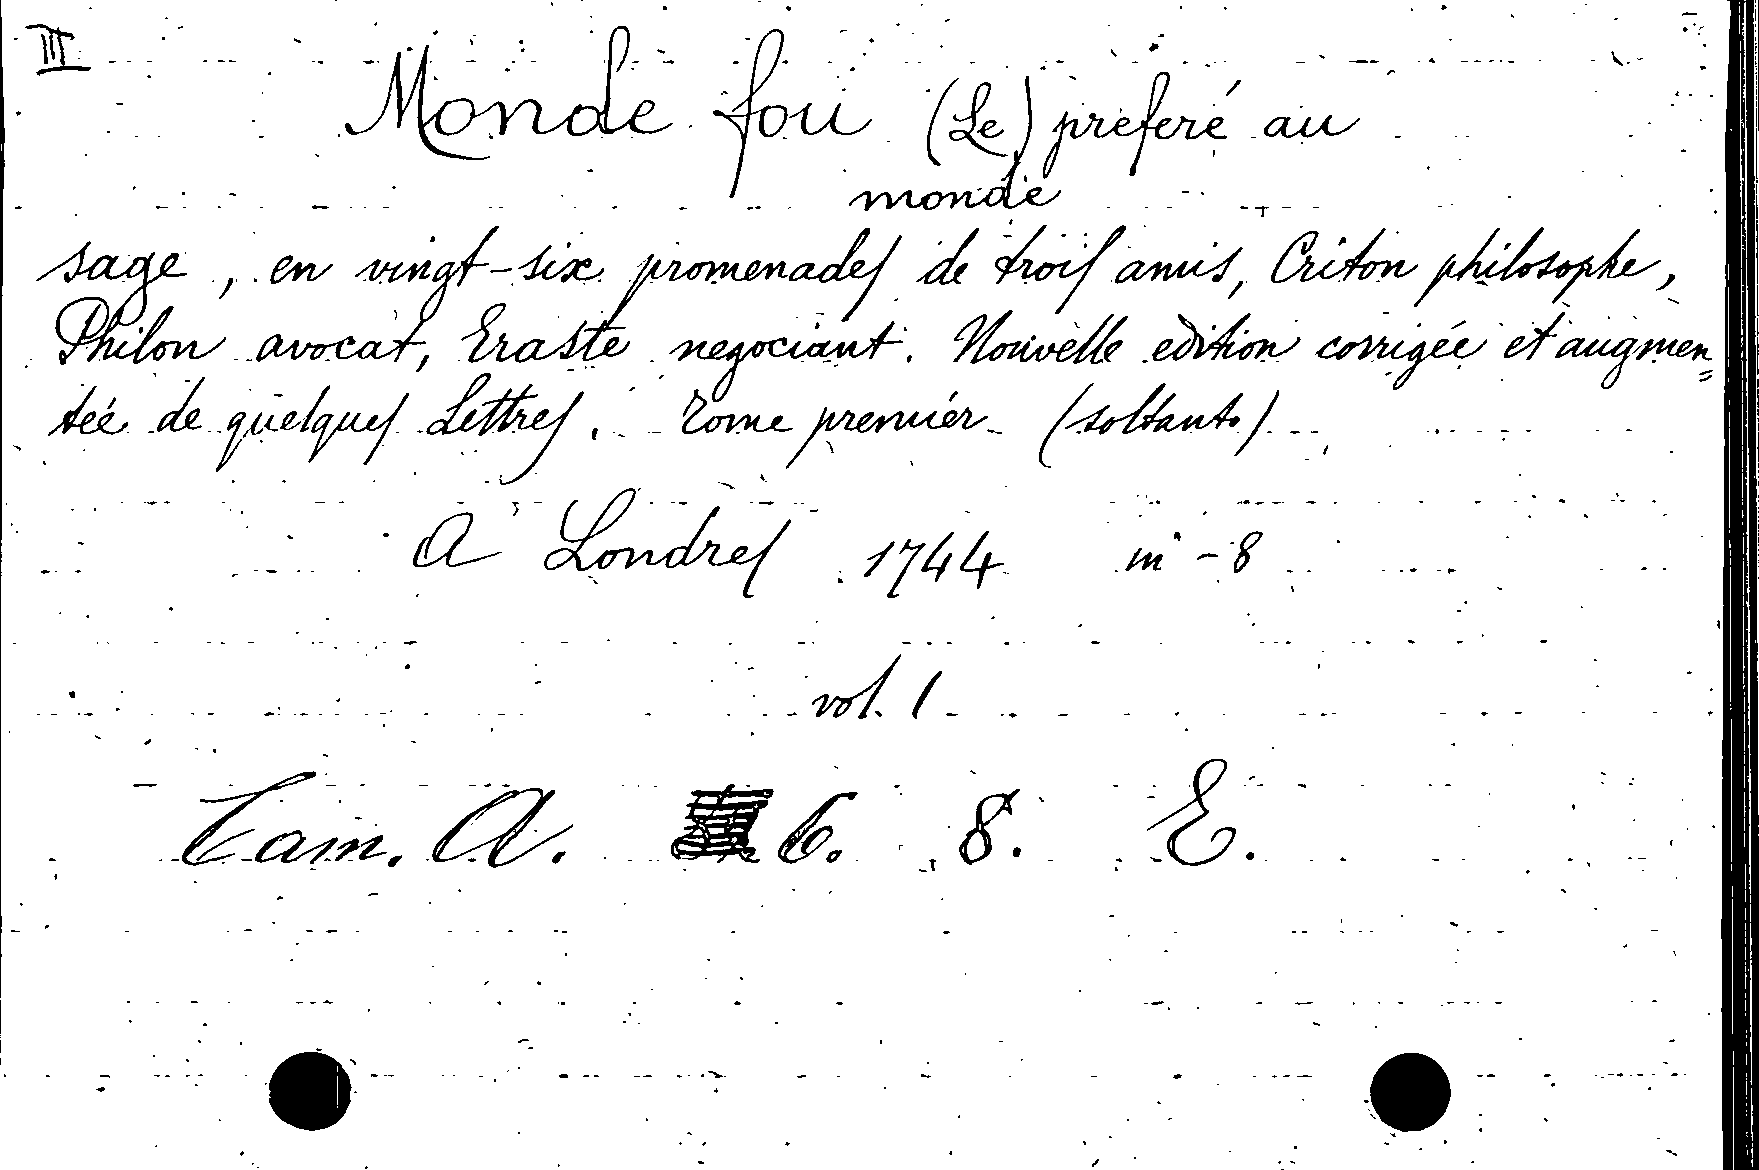 III
Monde fou (Le) preferé au
monde
sage, en vingt-six promenades de trois amis, Criton philosophe,
Philon avocat, Eraste negociant. Nouvelle edition corrigée et augmen=
tée de quelques Lettres. Tome premier (soltanto)
A Londres 1744 in-8
vol. 1
Cam. A. 6. 8. E.